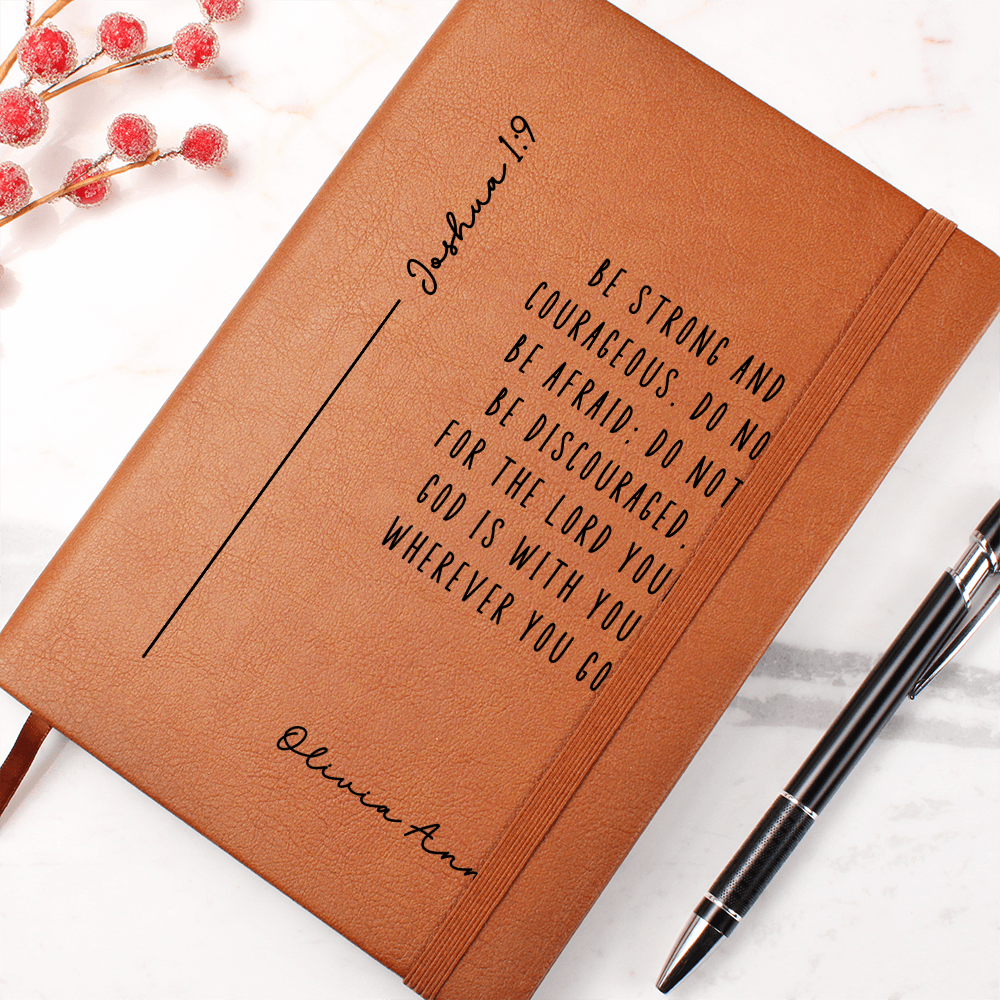 Joshua 1:9
BE STRONG AND
COURAGEOUS. DO NO
BE AFRAID; DO NOT
BE DISCOURAGED,
FOR THE LORD YOU
GOD IS WITH YOU
WHEREVER YOU GO
Olivia Ann